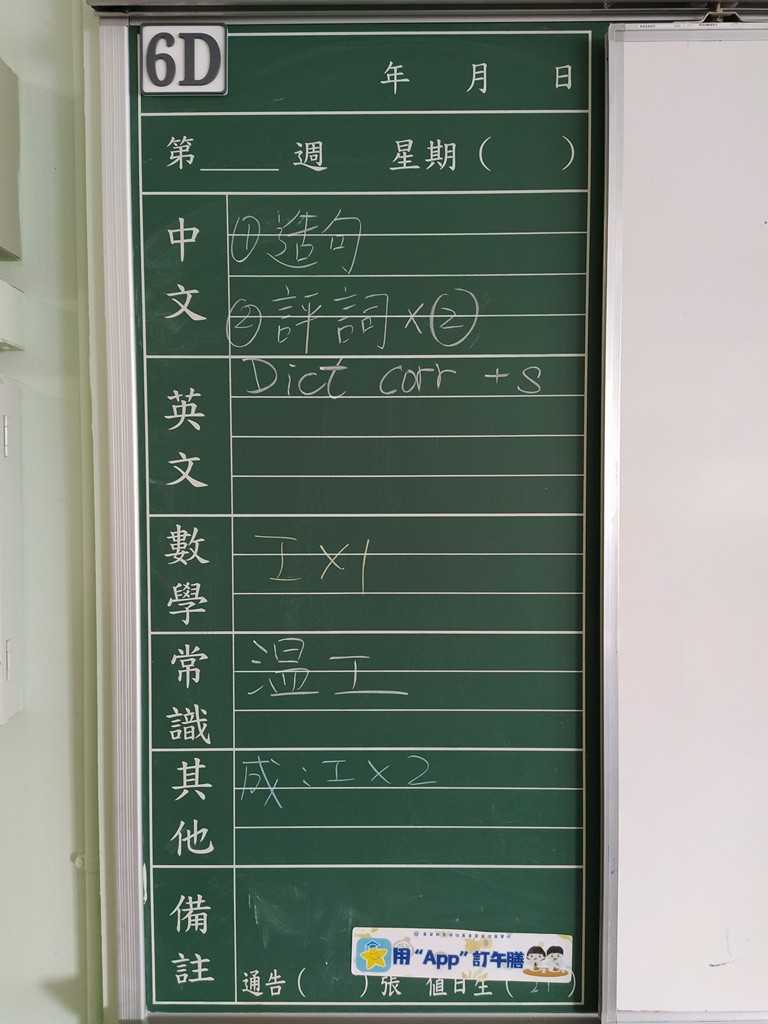 6D
年 月 日
第____週 星期( )
中文
①造句
②評詞×②
英文
Dict corr + s
數學
工×1
常識
温工
其他
成:工×2
備註
用“App”訂午膳
通告( )張 值日生( )